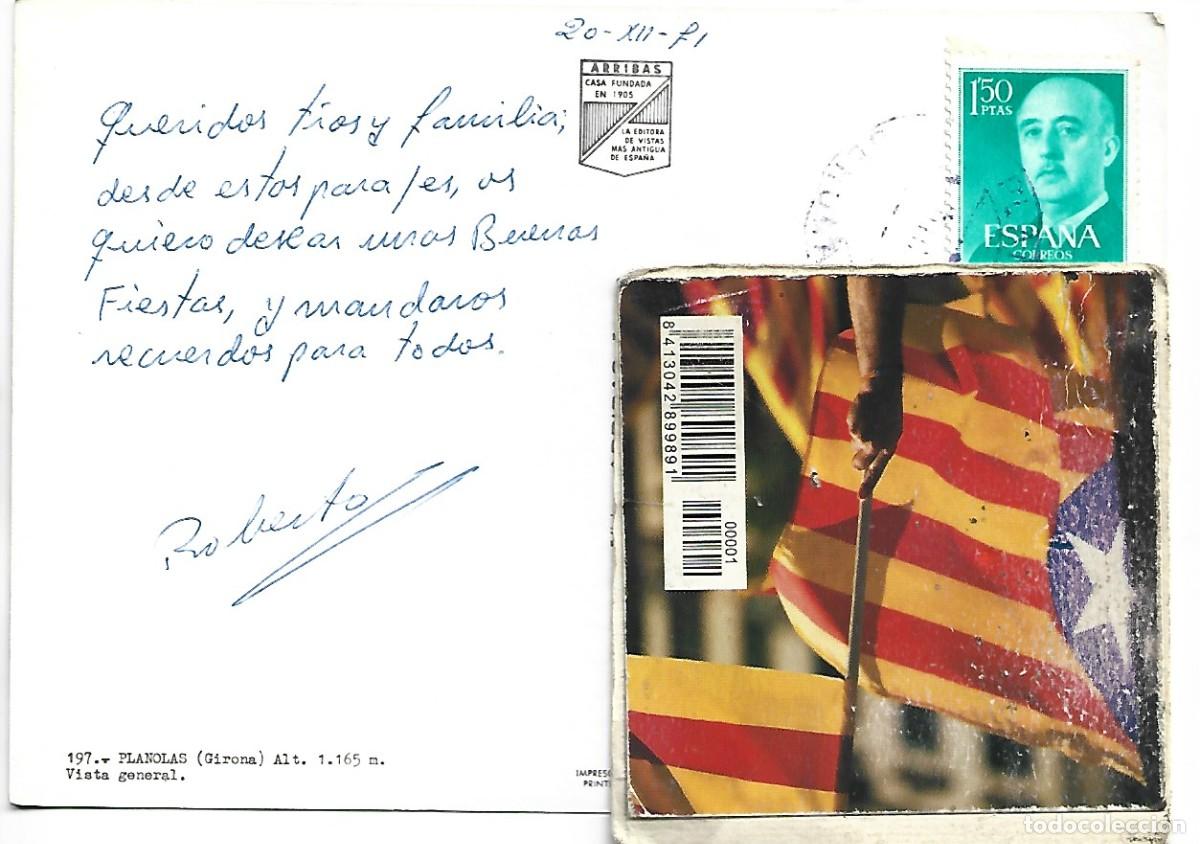 20-XII-71
ARRIBAS
CASA FUNDADA
EN 1905
LA EDITORA
DE VISTAS
MAS ANTIGUA
DE ESPAÑA
1'50
PTAS
ESPAÑA
CORREOS
Queridos tios y familia;
desde estos parajes, os
quiero desear unas Buenas
Fiestas, y mandaros
recuerdos para todos.
Roberto
8 413042 899891
00001
197.- PLANOLAS (Girona) Alt. 1.165 m.
Vista general.
IMPRESO
PRINTE
todocoleccion